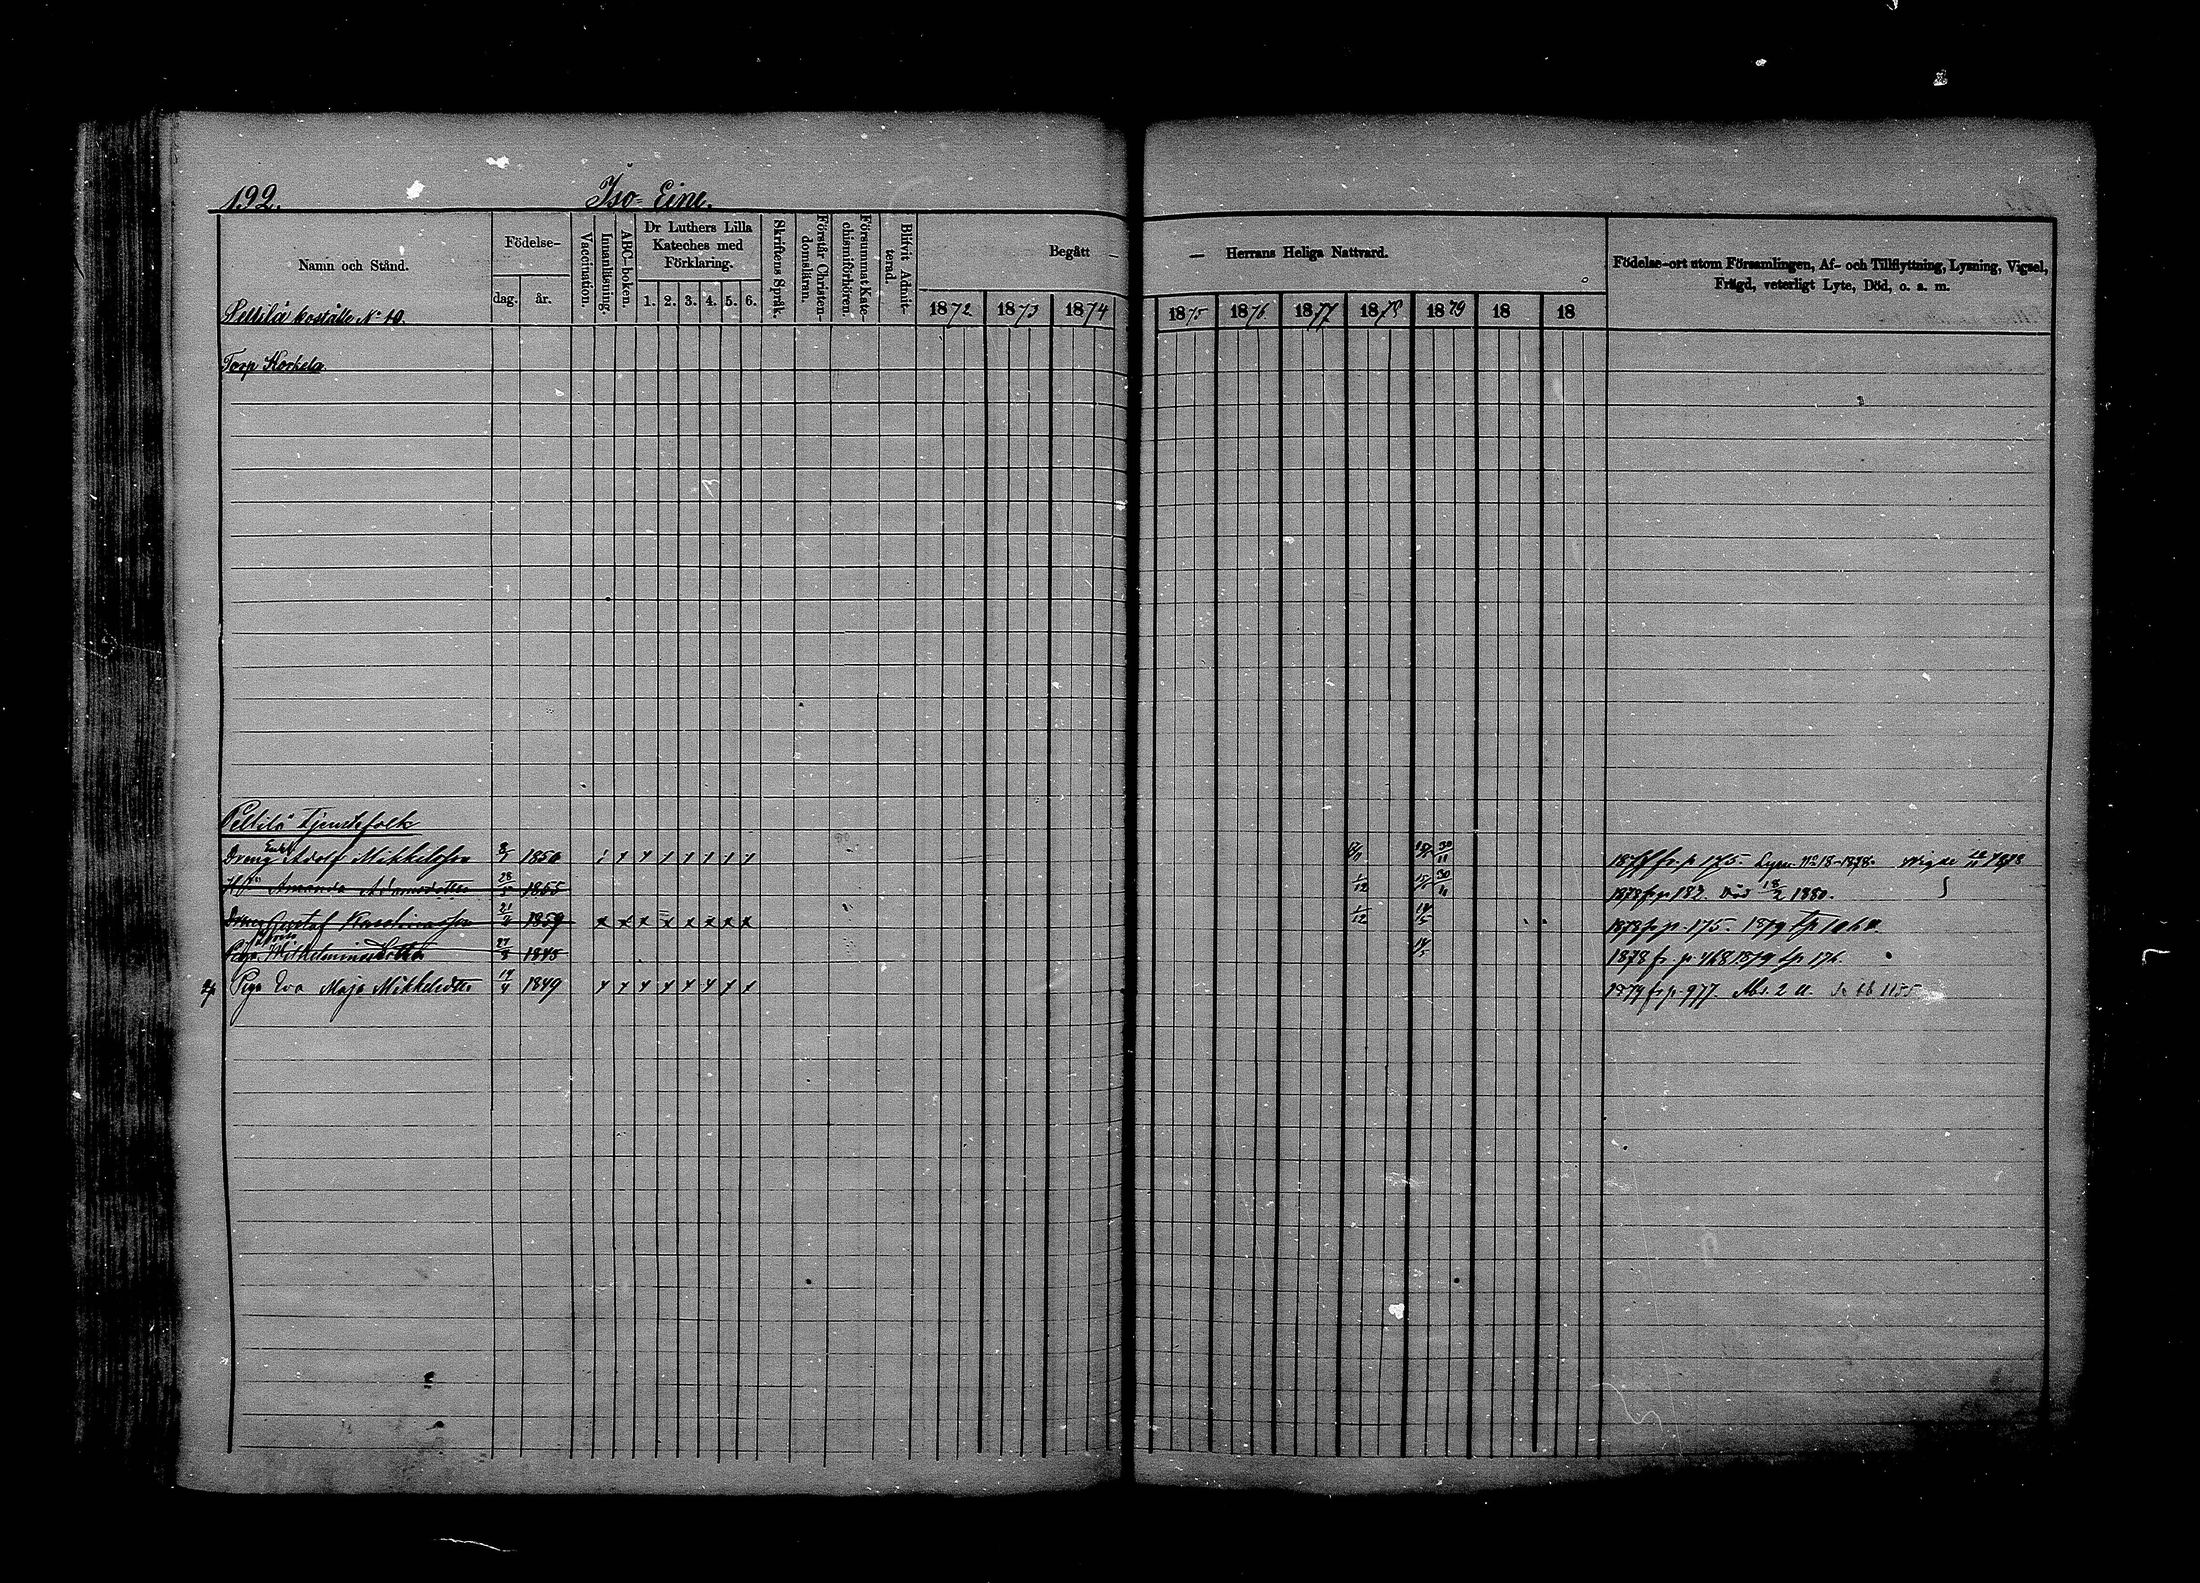 192.
Iso-Eine.
Namn och Stånd.
Födelse-
dag.
år.
Vaccination.
Innanläsning.
ABC-boken.
Dr Luthers Lilla
Kateches med
Förklaring.
1. 2. 3. 4. 5. 6.
Skriftens Språk.
Förstår Christen-
domsläran.
Försummat Kate-
chismiförhören.
Blifvit Admit-
terad.
Begått — — Herrans Heliga Nattvard.
1872 1873 1874 1875 1876. 1877 1878 1879 18 18
Födelse-ort utom Församlingen, Af- och Tillflyttning, Lysning, Vigsel,
Frägd, veterligt Lyte, Död, o. s. m.
No 10.
Torp Korkela.
Peltilä Tjenstefolk
Dreng Adolf Mikkelsson 1850 30/11 1877 fr p 175. Lysn. No 18-1878. Vigde 1878
Hu Amanda Adamsdotter 28/5 1855 1/12 30/11 1878 fr p 182. Död 18/2 1880.
Dreng Gustaf Karolinasson 21/4 1859 1/12 1878 fr p 175. 1879 t p 1060
Piga Wilhelmina 27/8 1848 14/5 1878 fr. p 468 1879 t p 176
Piga Eva Maja Mikkelsdtr 14/4 1849 1879 fr p 977. Abs. 2 u.